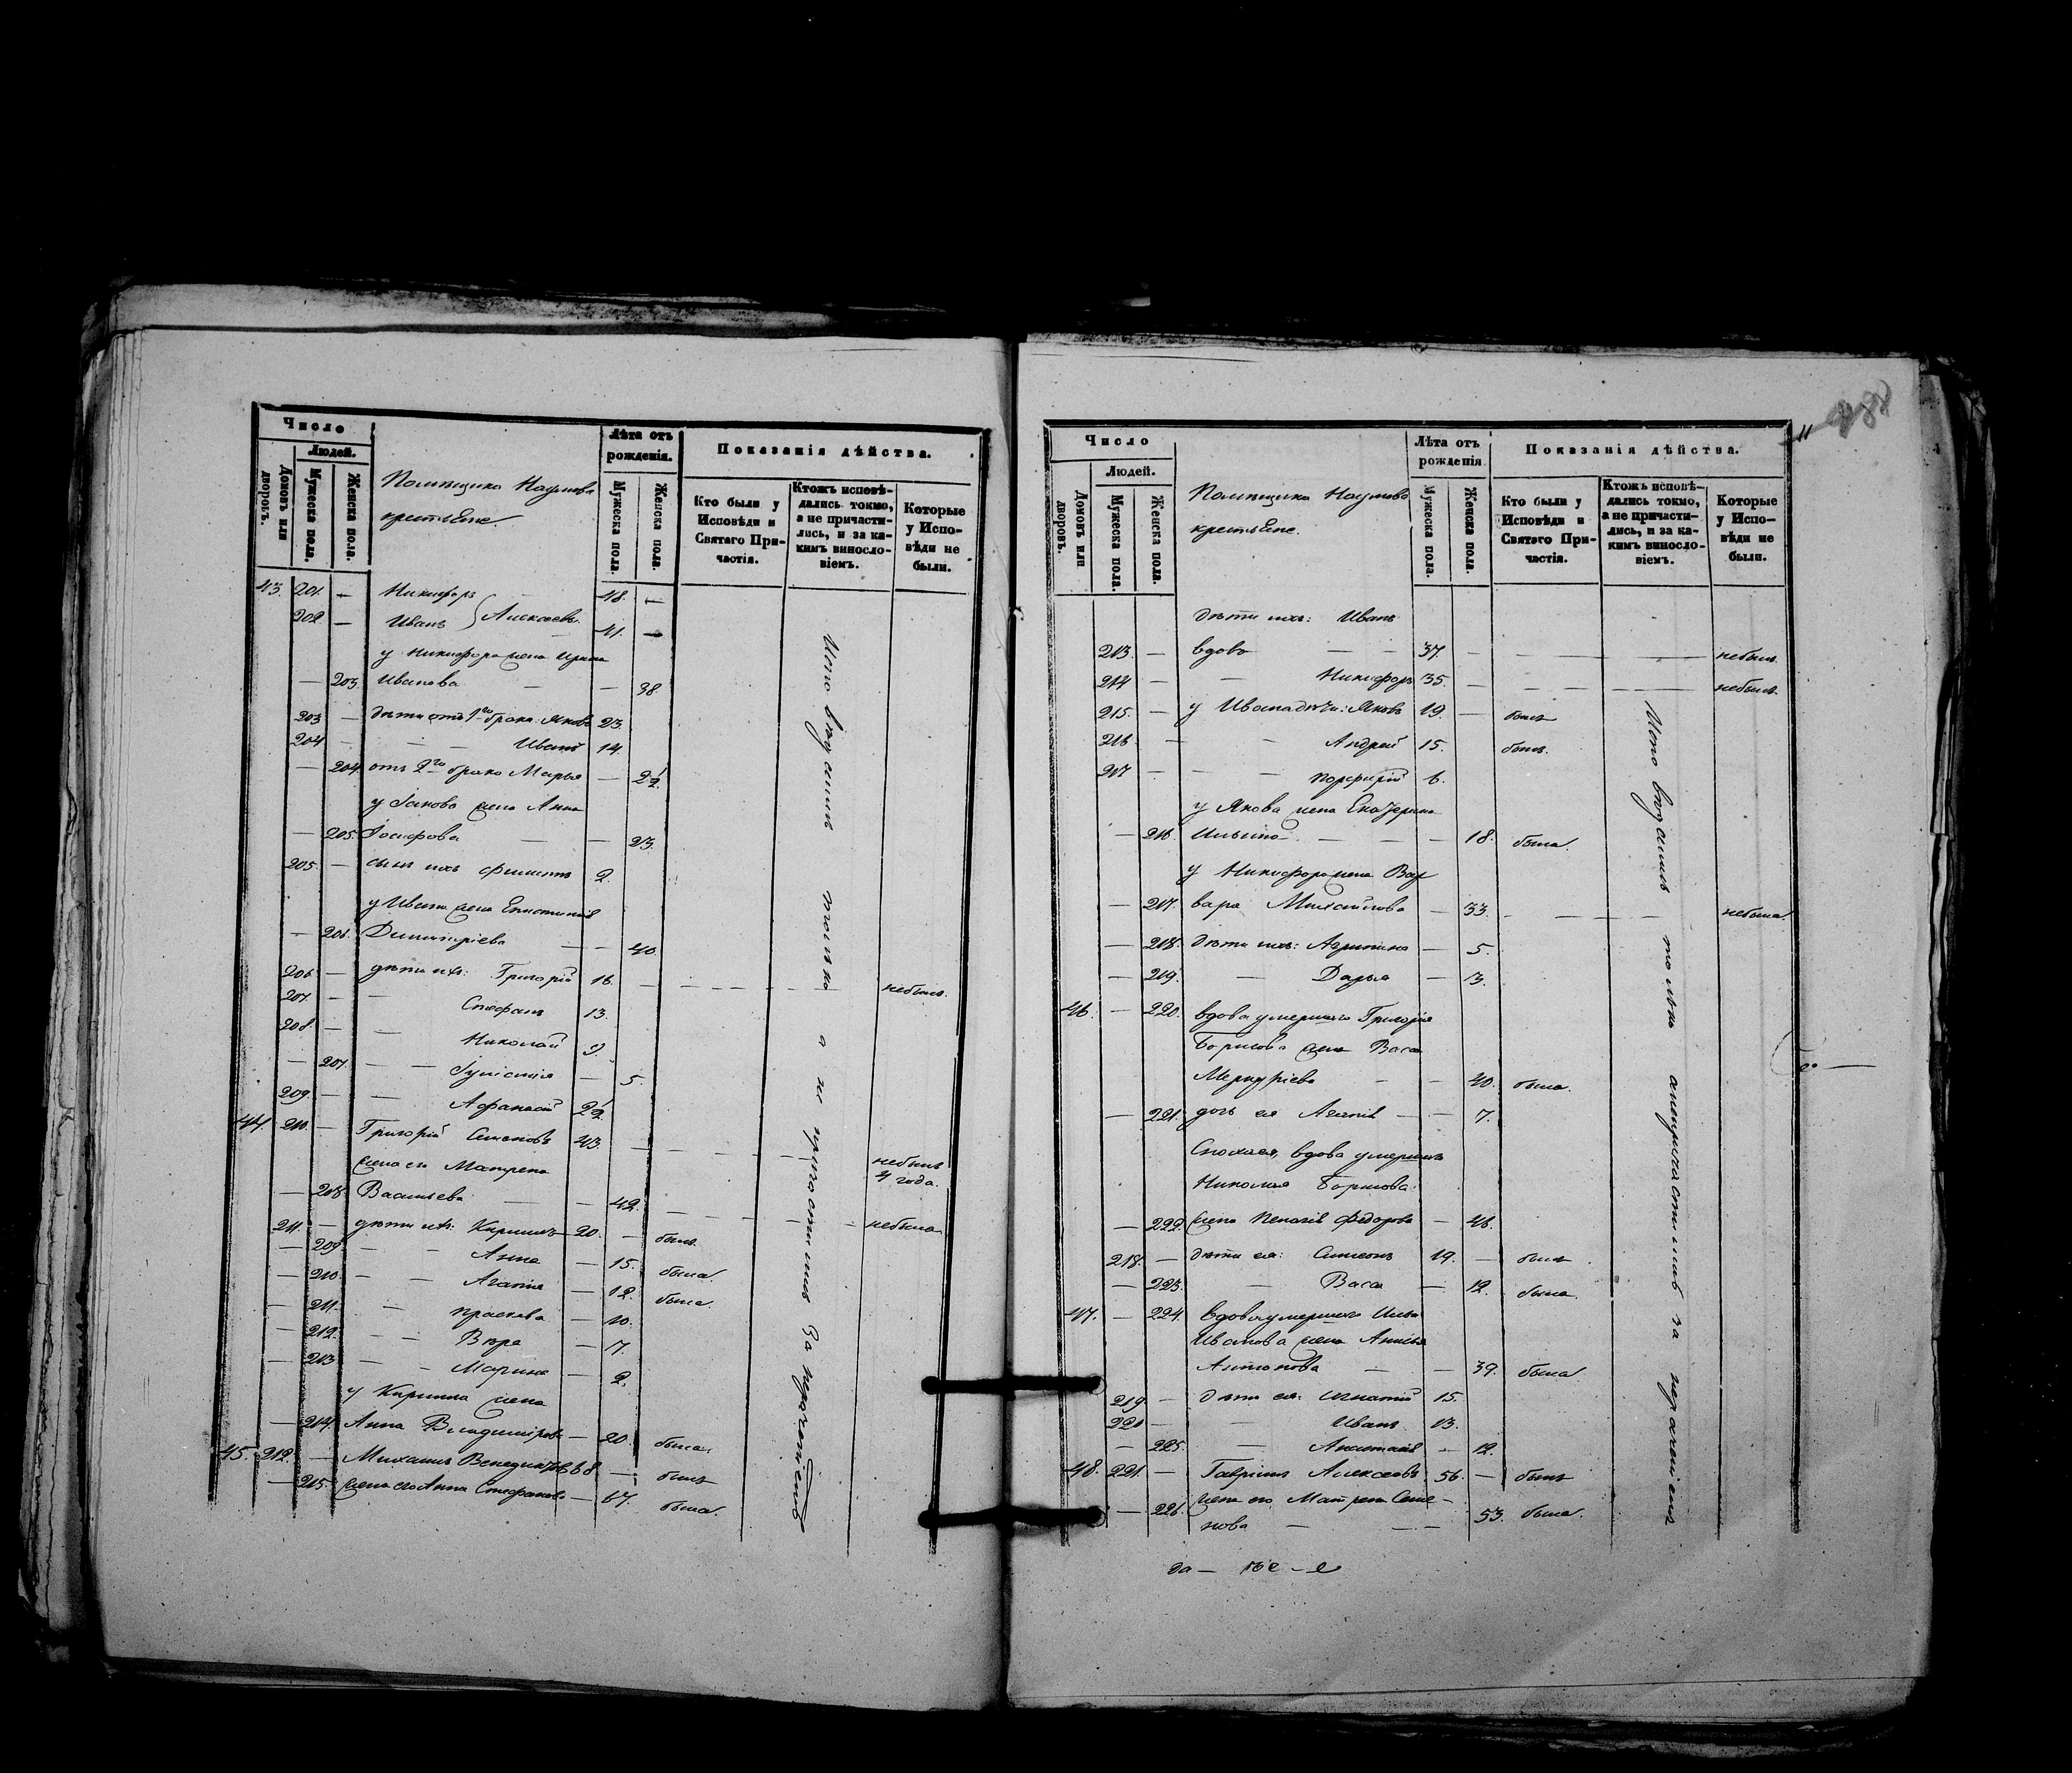 Число
Людей.
Домовъ или дворовъ.
Мужеска пола.
Женска пола.
Помѣщика Наумова
крестьяне.
Лѣта отъ рожденія.
Мужеска пола.
Женска пола.
Показанія дѣйства.
Кто были у Исповѣди и Святаго Причастія.
Ктожъ исповѣдались токмо, а не причастились, и за какимъ винословіемъ.
Которые у Исповѣди не были.
43. 201. — Никифоръ 48. —
202 — Иванъ } Алексѣевы 41. —
у Никифора жена Ирина
— 203. Иванова — — 38
203 — дѣти отъ 1го брака: Яковъ 23.
204 — — — Иванъ 14.
— 204 отъ 2го брака Марья — 2½
у Іакова жена Анна
— 205. Іосифова — — 23.
205. — сынъ ихъ Филиппъ 2.
у Ивана жена
— 206. Димитріева — — 40.
206 — дѣти ихъ: Григорій 16. — небылъ.
207 — — Стефанъ 13.
208. — — Николай 9.
— 207. — — — 5.
209. — — Афанасій 2½
44. 210. — Григорій Семеновъ 43. — небылъ
4 года.
жена его Матрена
— 208. Васильева — — 42. — небыла
211. — дѣти ихъ: Кириллъ 20. — былъ.
— 209 — — Анна — 15. была.
— 210. — — Агапія — 12. была.
— 211. — Праскева — 10.
— 212. — — Вѣра — 7.
— 213 — — Марина — 2.
у Кирилла жена
— 214. Анна Владимірова — 20. была.
45. 212. — Михаилъ Венедиктовъ 68 — былъ
— 215. жена его Анна Стефанова — 67. была.
только а не причастились за
Число
Людей.
Домовъ или дворовъ.
Мужеска пола.
Женска пола.
Помѣщика Наумова
крестьяне.
Лѣта отъ рожденія
Мужеска пола.
Женска пола.
Показанія дѣйства.
Кто были у Исповѣди и Святаго Причастія.
Ктожъ исповѣдались токмо, а не причастились, и за какимъ винословіемъ.
Которые у Исповѣди не были.
дѣти ихъ: Иванъ
213. — вдовъ — — 37. — небылъ.
214 — — Никифоръ 35. — небылъ.
215. — у Ивана дѣти: Яковъ 19. — былъ
216 — — Андрей 15. былъ.
217 — — Порфирій 6.
у Якова жена Екатерина
— 216. Ильина — — — 18. была.
у Никифора жена Вар
— 217. вара Михайлова — 33. — небыла.
— 218. дѣти ихъ: Агрипина — 5.
— 219. — Дарья — 3.
46. — 220. вдова умершаго Григорія
Борисова жена Васа
Меркуріева — — 40. была.
— 221. дочь ея Агапія — — 7.
вдова умершаго
Николая Борисова
— 222. жена Пелагія Федорова — 46.
218. — дѣти ея: Симеонъ 19. — былъ
— 223. — Васа — 12. была.
47. — 224. вдова умершаго Ильи
Иванова жена Анисья
Антонова — — 39. была.
219. — дѣти ея: Игнатій 15.
220 — — Иванъ 13.
— 225. — Анастасія — 12.
48. 221. — Гавріилъ Алексѣевъ 56. — былъ
— 226. жена его Матрена Семе-
нова — — — 53. была.
только анепричастились за нерадѣніемъ